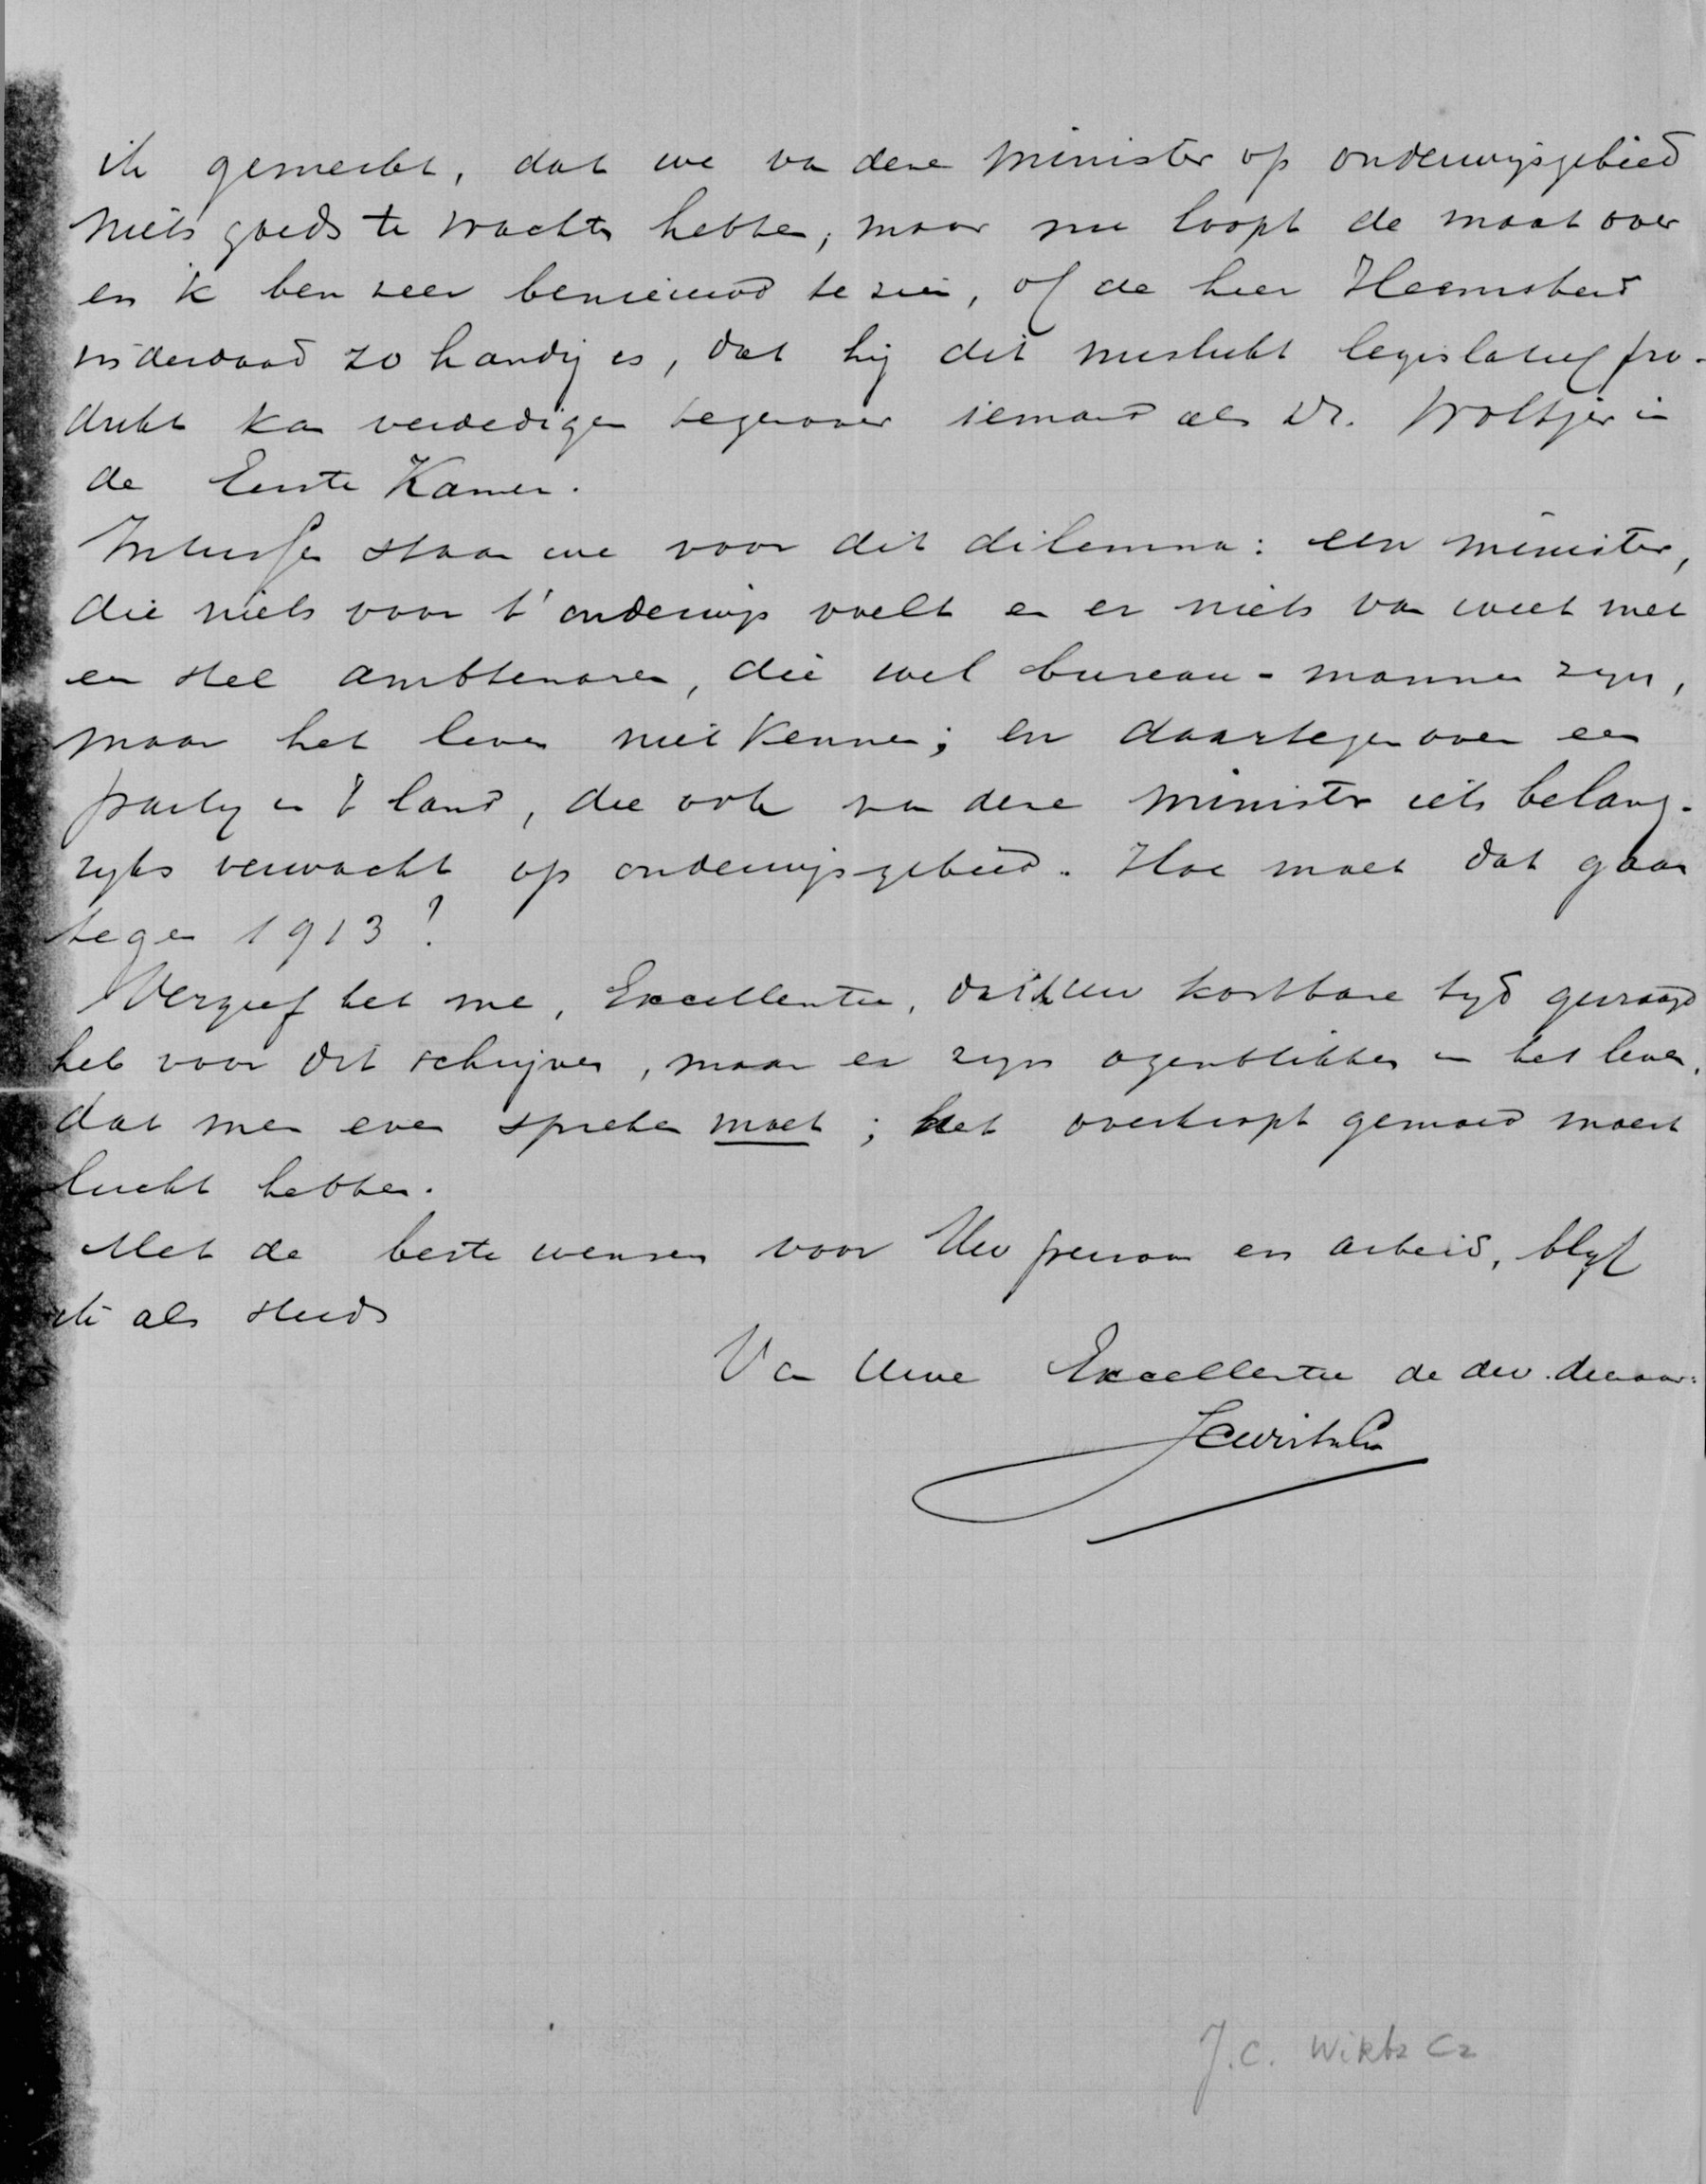 ik gemerkt, dat we va deze minister op onderwijsgebied
niets goeds te wachten hebben, maar nu loopt de maat over
en ik ben zeer benieuwd te zien, of de heer Heemskerk
inderdaad zo handig is, dat hij dit mislukt legislatief pro-
dukt kan verdedigen tegenover iemand als Dr. Woltjer in
de Eerste Kamer.
Intussen staan we voor dit dilemma: een minister,
die niets voor 't onderwijs voelt en er niets van weet met
een stel ambtenaren, die wel bureau-mannen zijn,
maar het leven niet kennen; en daartegenover een
partij in 't land, die ook van deze minister iets belang-
rijks verwacht op onderwijsgebied. Hoe moet dat gaan
tegen 1913?
Vergeef het me, Excellentie, dat ik Uw kostbare tijd gevraagd
heb voor dit schrijven, maar er zijn ogenblikken in het leven,
dat men even spreken moet; het overkropt gemoed moest
lucht hebben.
Met de beste wensen voor Uw persoon en arbeid, blijf
ik als steeds
Van Uwe Excellentie de dw. dienaar:
JCWirtzCz
J.C. Wirtz Cz